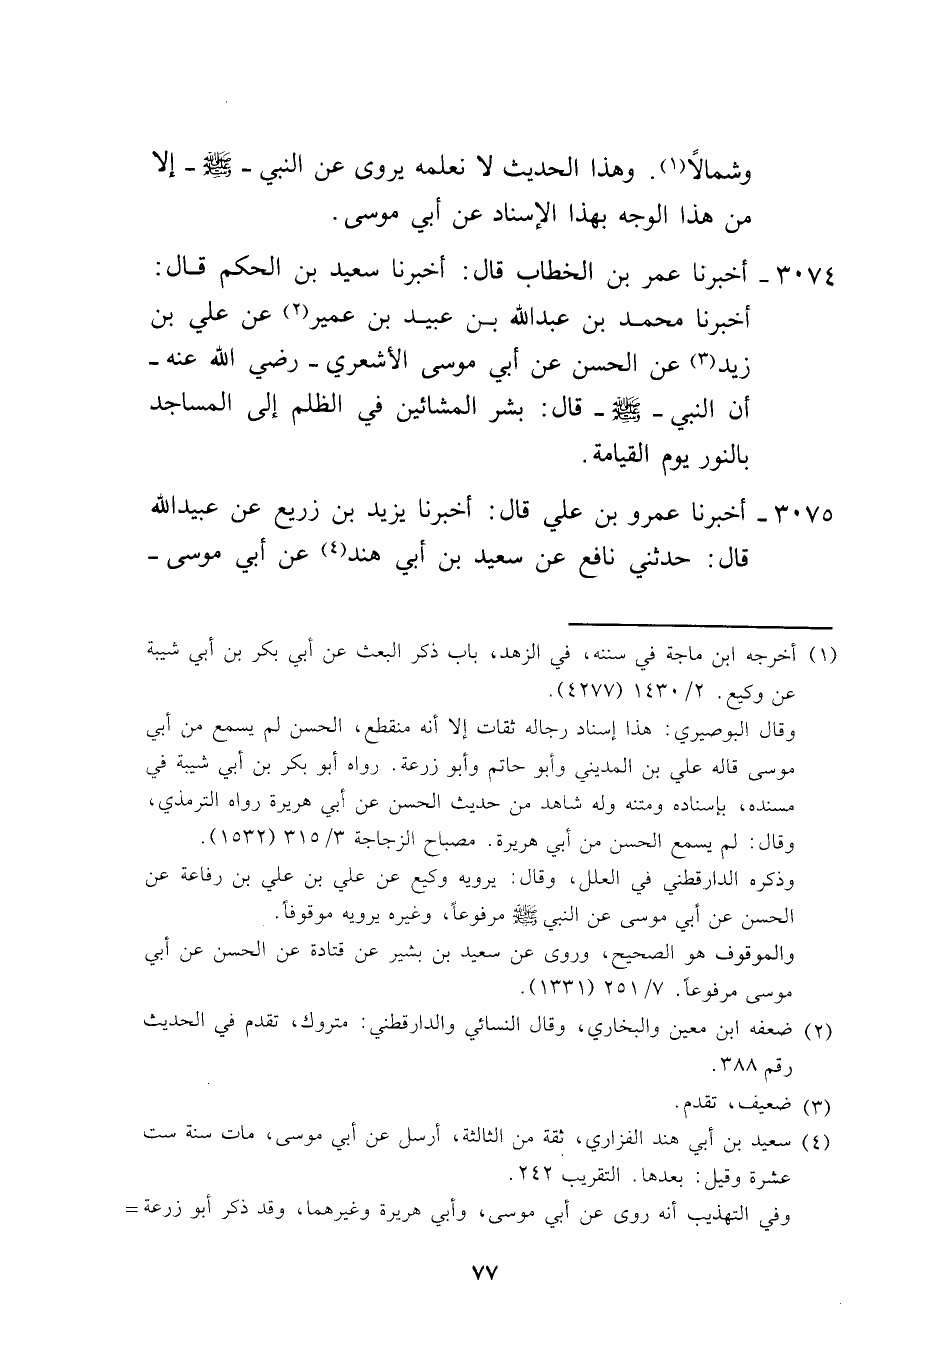 وشمالاً(١). وهذا الحديث لا نعلمه يروى عن النبي - ﷺ - إلا
من هذا الوجه بهذا الإسناد عن أبي موسى.
٣٠٧٤ - أخبرنا عمر بن الخطاب قال: أخبرنا سعيد بن الحكم قال:
أخبرنا محمد بن عبدالله بن عبيد بن عمير(٢) عن علي بن
زيد(٣) عن الحسن عن أبي موسى الأشعري - رضي الله عنه -
أن النبي - ﷺ - قال: بشر المشائين في الظلم إلى المساجد
بالنور يوم القيامة.
٣٠٧٥ - أخبرنا عمرو بن علي قال: أخبرنا يزيد بن زريع عن عبيدالله
قال: حدثني نافع عن سعيد بن أبي هند(٤) عن أبي موسى -
(١) أخرجه ابن ماجة في سننه، في الزهد، باب ذكر البعث عن أبي بكر بن أبي شيبة
عن وكيع. ٢/ ١٤٣٠ (٤٢٧٧).
وقال البوصيري: هذا إسناد رجاله ثقات إلا أنه منقطع، الحسن لم يسمع من أبي
موسى قاله علي بن المديني وأبو حاتم وأبو زرعة. رواه أبو بكر بن أبي شيبة في
مسنده، بإسناده ومتنه وله شاهد من حديث الحسن عن أبي هريرة رواه الترمذي،
وقال: لم يسمع الحسن من أبي هريرة. مصباح الزجاجة ٣/ ٣١٥ (١٥٣٢).
وذكره الدارقطني في العلل، وقال: يرويه وكيع عن علي بن علي بن رفاعة عن
الحسن عن أبي موسى عن النبي ﷺ مرفوعاً، وغيره يرويه موقوفاً.
والموقوف هو الصحيح، وروى عن سعيد بن بشير عن قتادة عن الحسن عن أبي
موسى مرفوعاً. ٧/ ٢٥١ (١٣٣١).
(٢) ضعفه ابن معين والبخاري، وقال النسائي والدارقطني: متروك، تقدم في الحديث
رقم ٣٨٨.
(٣) ضعيف، تقدم.
(٤) سعيد بن أبي هند الفزاري، ثقة من الثالثة، أرسل عن أبي موسى، مات سنة ست
عشرة وقيل: بعدها. التقريب ٢٤٢.
وفي التهذيب أنه روى عن أبي موسى، وأبي هريرة وغيرهما، وقد ذكر أبو زرعة =
٧٧